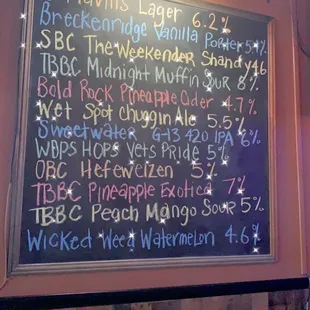 Lager 6.2%
Breckenridge Vanilla Porter 5.4%
SBC The Weekender Shandy 4.6
TBBC Midnight Muffin Sour 8%
Bold Rock Pineapple Cider 4.7%
Wet Spot Chuggin Ale 5.5%
Sweetwater G-13 420 IPA 6%
WBPS HOPS Vets Pride 5%
OBC Hefeweizen 5%
TBBC Pineapple Exotica 7%
TBBC Peach Mango Sour 5%
Wicked Weed Watermelon 4.6%